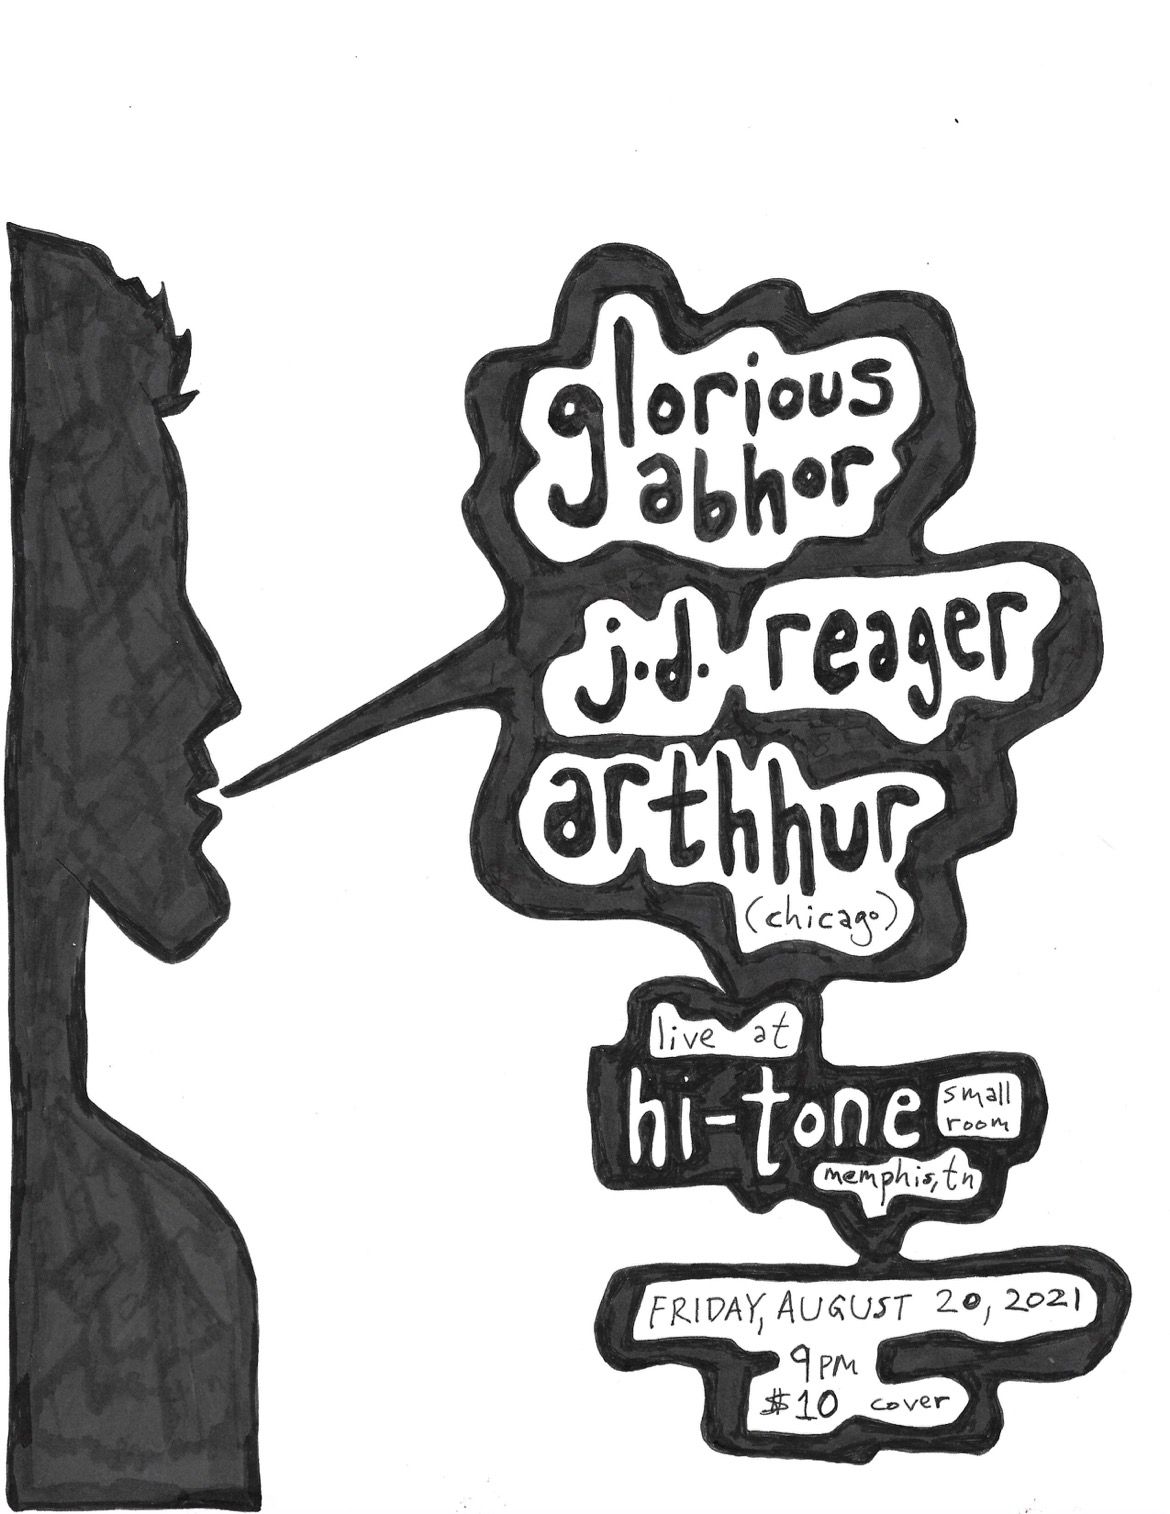 glorious
abhor
j.d. reager
arthhur
(chicago)
live at
hi-tone small room
memphis, tn
FRIDAY, AUGUST 20, 2021
9 PM
$10 cover